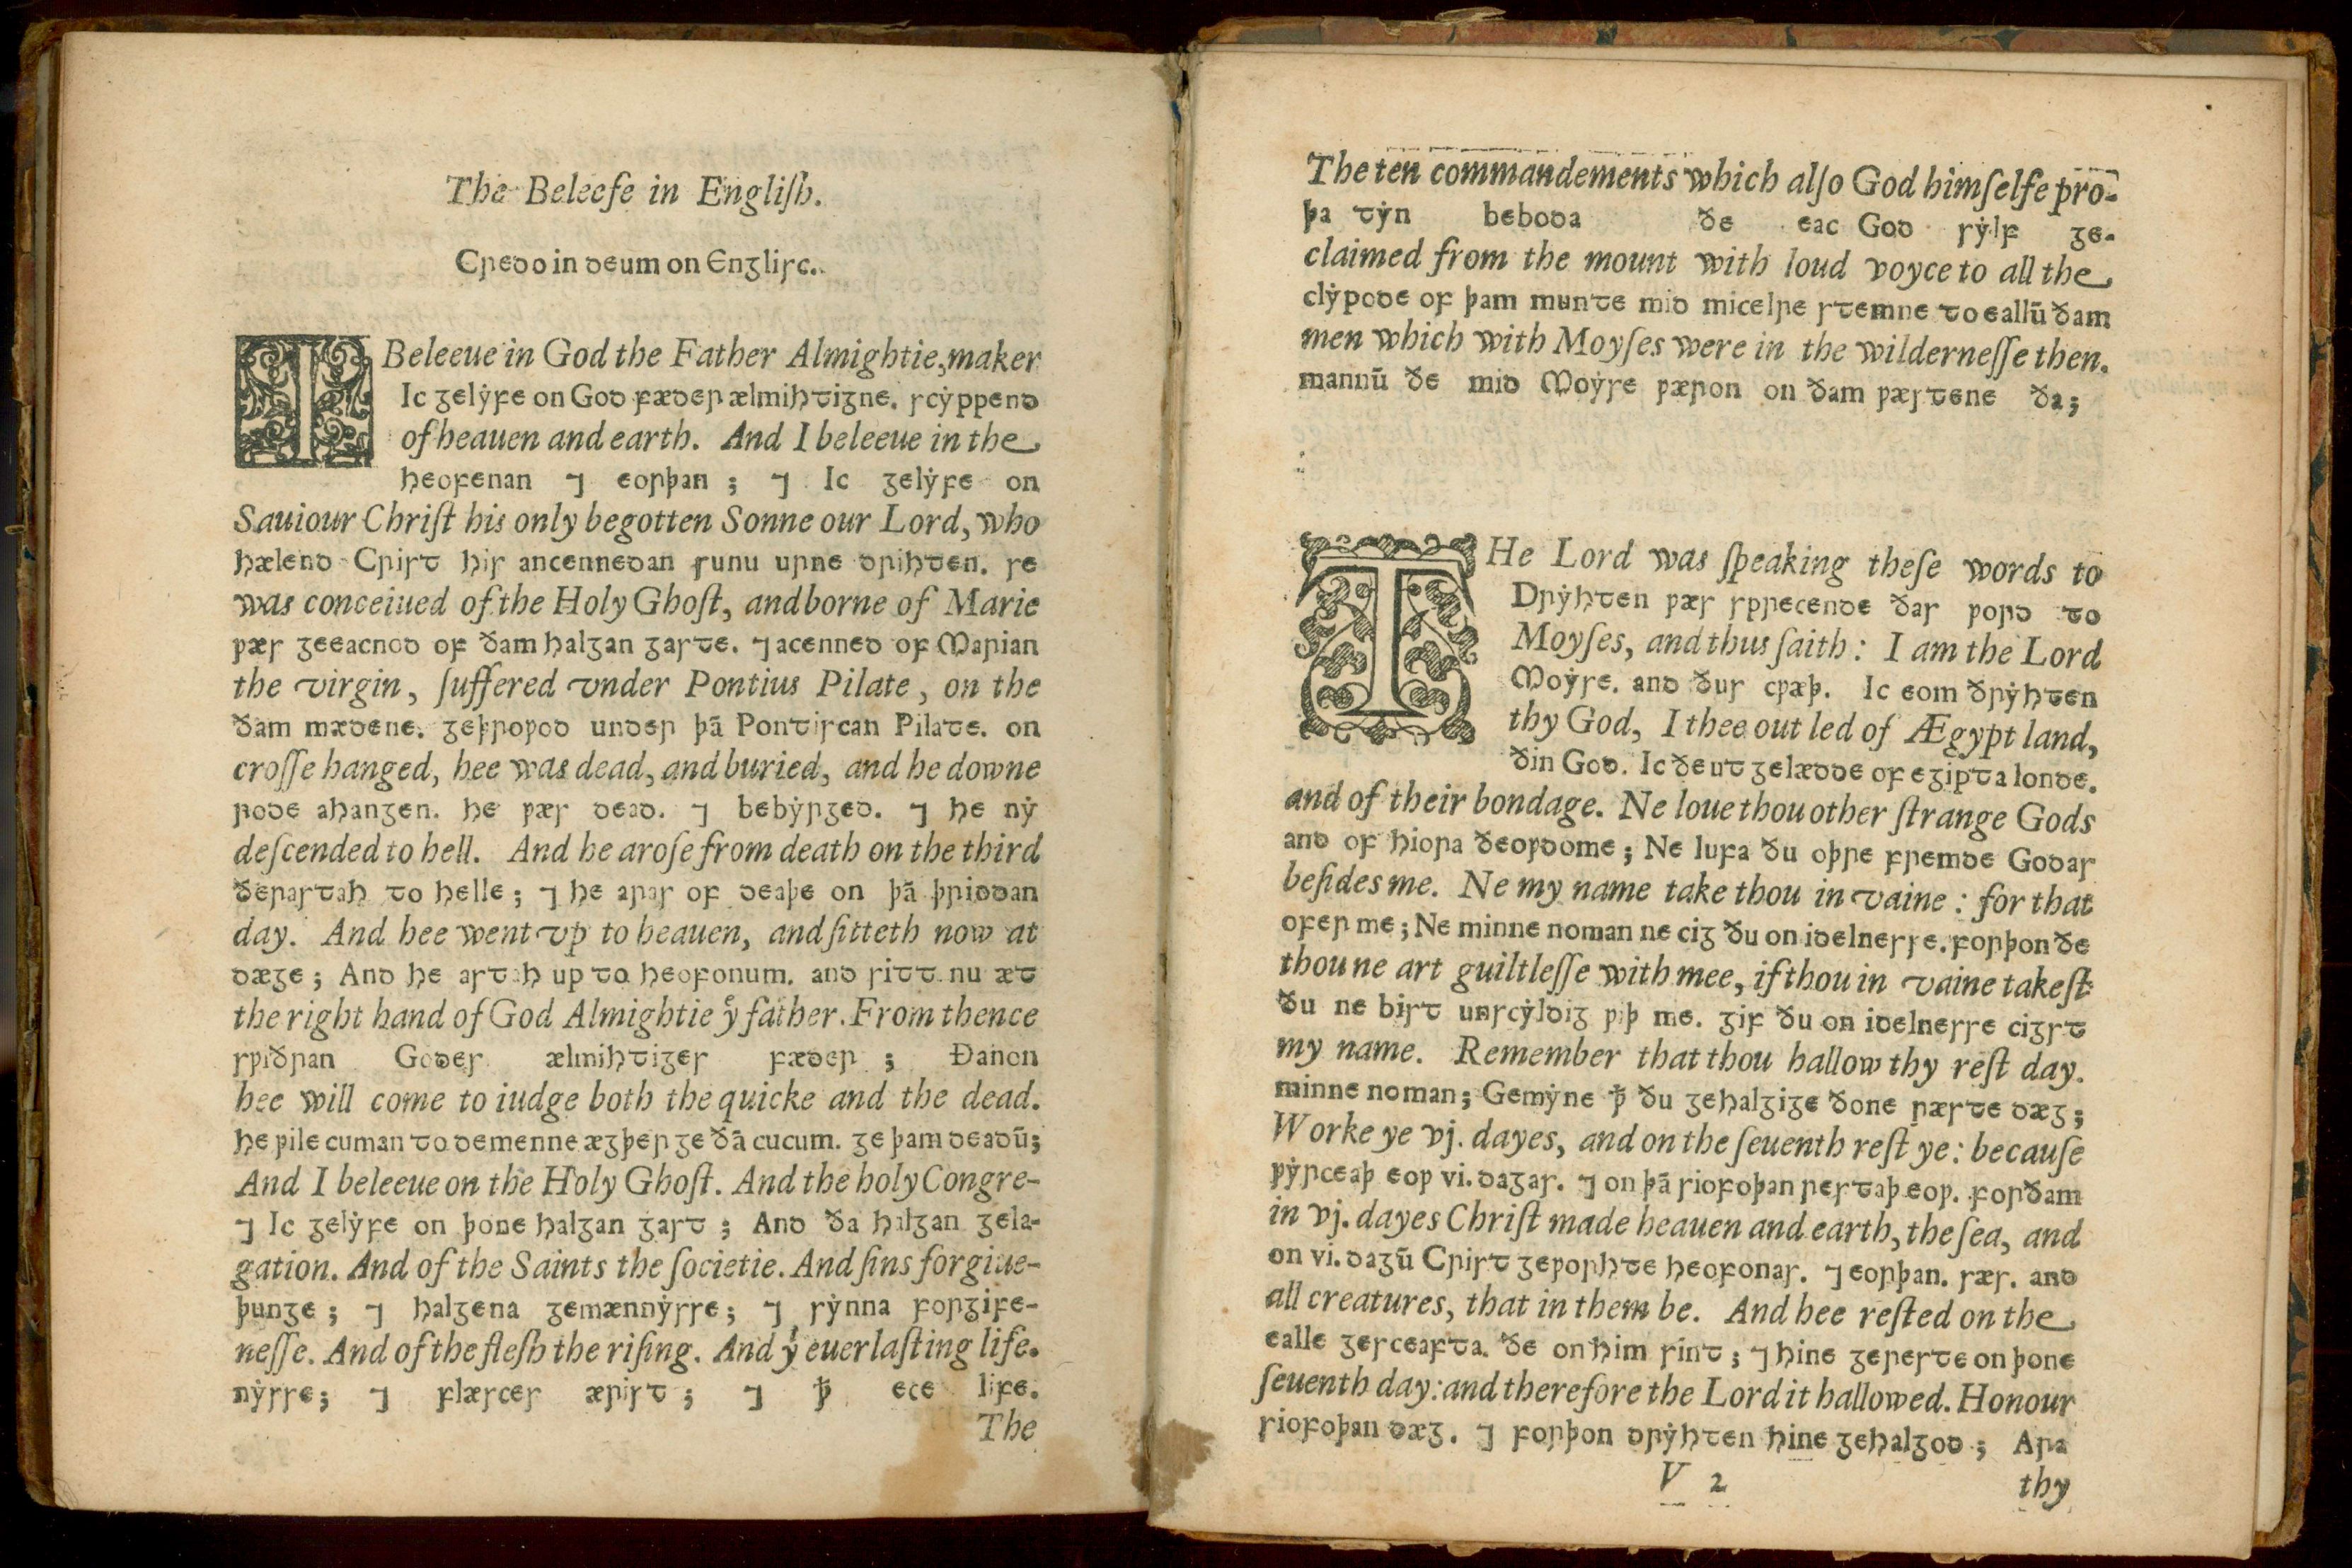 The Beleefe in Engliſh.
Cꞃeꝺo in ꝺeum on Enᵹliꞅc.
I Beleeue in God the Father Almightie, maker
Ic ᵹelẏꝼe on Goꝺ ꝼæꝺeꞃ ælmihꞇiᵹne. ꞅcẏppenꝺ
of heauen and earth. And I beleeue in the
heoꝼenan ⁊ eoꞃþan ; ⁊ Ic ᵹelẏꝼe on
Sauiour Chriſt his only begotten Sonne our Lord, who
hælenꝺ Cꞃiꞅꞇ hiꞅ ancenneꝺan ꞅunu uꞃne ꝺꞃihꞇen. ꞅe
was conceiued of the Holy Ghoſt, and borne of Marie
ƿæꞅ ᵹeeacnoꝺ oꝼ ðam halᵹan ᵹaꞅꞇe. ⁊ acenneꝺ oꝼ Maꞃian
the virgin, ſuffered vnder Pontius Pilate, on the
ðam mæꝺene. ᵹeþꞃoƿoꝺ unꝺeꞃ þā Ponꞇiꞅcan Pilaꞇe. on
croſſe hanged, hee was dead, and buried, and he downe
ꞃoꝺe ahanᵹen. he ƿæꞅ ꝺeaꝺ. ⁊ bebẏꞃᵹeꝺ. ⁊ he nẏ
deſcended to hell. And he aroſe from death on the third
ðeꞃaꞅꞇah ꞇo helle ; ⁊ he aꞃaꞅ oꝼ ꝺeaþe on þā þꞃiꝺꝺan
day. And hee went vp to heauen, and ſitteth now at
ꝺæᵹe ; Anꝺ he aꞅꞇah up ꞇo heoꝼonum. anꝺ ꞅiꞇꞇ nu æꞇ
the right hand of God Almightie yͤ father. From thence
ꞅƿiðꞃan Goꝺeꞅ ælmihꞇiᵹeꞅ ꝼæꝺeꞃ ; Ðanon
hee will come to iudge both the quicke and the dead.
he ƿile cuman ꞇo ꝺemenne æᵹþeꞃ ᵹe ðā cucum. ᵹe þam ꝺeaꝺū;
And I beleeue on the Holy Ghoſt. And the holy Congre-
⁊ Ic ᵹelẏꝼe on þone halᵹan ᵹaꞅꞇ ; Anꝺ ða halᵹan ᵹela-
gation. And of the Saints the ſocietie. And ſins forgiue-
þunᵹe ; ⁊ halᵹena ᵹemænnẏꞅꞅe ; ⁊ ꞅẏnna ꝼoꞃᵹiꝼe-
neſſe. And of the fleſh the riſing. And yͤ euerlaſting life.
nẏꞅꞅe; ⁊ ꝼlæꞅceꞅ æꞃiꞅꞇ ; ⁊ ꝥ ece liꝼe.
The
The ten commandements which alſo God himſelfe pro-
þa ꞇẏn beboꝺa ðe eac Goꝺ ꞅẏlꝼ ᵹe-
claimed from the mount with loud voyce to all the
clẏpoꝺe oꝼ þam munꞇe miꝺ micelꞃe ꞅꞇemne ꞇo eallū ðam
men which with Moyſes were in the wilderneſſe then.
mannū ðe miꝺ Moẏꞅe ƿæꞃon on ðam ƿæꞅꞇene ða;
THe Lord was ſpeaking theſe words to
Dꞃẏhꞇen ƿæꞅ ꞅpꞃecenꝺe ðaꞅ ƿoꞃꝺ ꞇo
Moyſes, and thus ſaith: I am the Lord
Moẏꞅe. anꝺ ðuꞅ cƿæþ. Ic eom ðꞃẏhꞇen
thy God, I thee out led of Ægypt land,
ðin Goꝺ. Ic ðe uꞇ ᵹelæꝺꝺe oꝼ eᵹipꞇa lonꝺe.
and of their bondage. Ne loue thou other ſtrange Gods
anꝺ oꝼ hioꞃa ðeoƿꝺome ; Ne luꝼa ðu oþꞃe ꝼꞃemꝺe Goꝺaꞅ
beſides me. Ne my name take thou in vaine : for that
oꝼeꞃ me ; Ne minne noman ne ciᵹ ðu on iꝺelneꞅꞅe. ꝼoꞃþon ðe
thou ne art guiltleſſe with mee, if thou in vaine takeſt
ðu ne biꞅꞇ unꞅcẏlꝺiᵹ ƿiþ me. ᵹiꝼ ðu on iꝺelneꞅꞅe ciᵹꞅꞇ
my name. Remember that thou hallow thy reſt day.
minne noman; Gemẏne ꝥ ðu ᵹehalᵹiᵹe ðone ꞃæꞅꞇe ꝺæᵹ;
Worke ye vj. dayes, and on the ſeuenth reſt ye: becauſe
ƿẏꞃceaþ eoƿ vi. ꝺaᵹaꞅ. ⁊ on þā ꞅioꝼoþan ꞃeꞅꞇaþ eoƿ. ꝼoꞃðam
in vj. dayes Chriſt made heauen and earth, the ſea, and
on vi. ꝺaᵹū Cꞃiꞅꞇ ᵹeƿoꞃhꞇe heoꝼonaꞅ. ⁊ eoꞃþan. ꞅæꞅ. anꝺ
all creatures, that in them be. And hee reſted on the
ealle ᵹeꞅceaꝼꞇa. ðe on him ꞅinꞇ ; ⁊ hine ᵹeꞃeꞅꞇe on þone
ſeuenth day: and therefore the Lord it hallowed. Honour
ꞅioꝼoþan ꝺæᵹ. ⁊ ꝼoꞃþon ꝺꞃẏhꞇen hine ᵹehalᵹoꝺ ; Aꞃa
V 2 thy